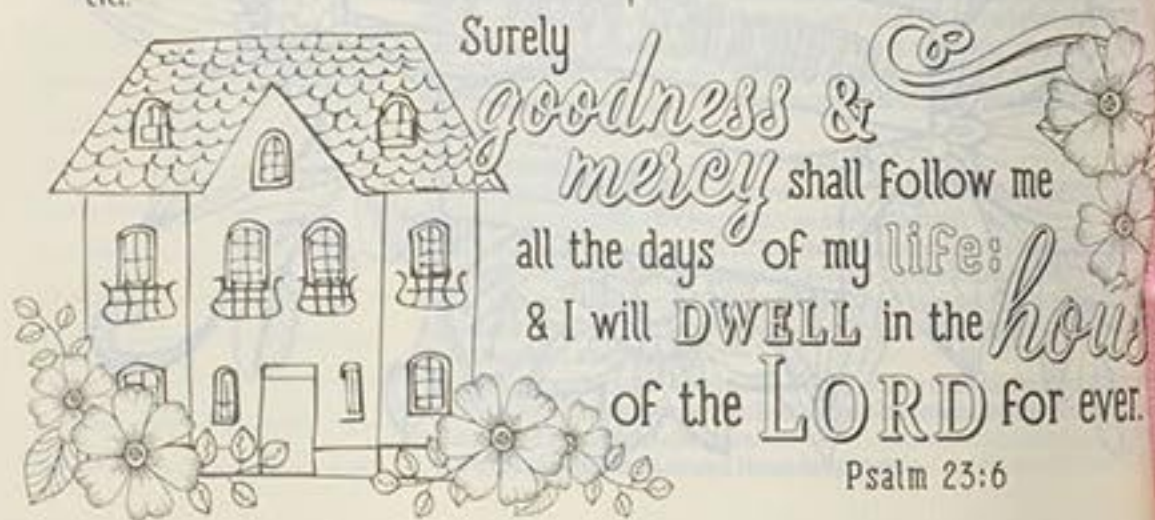 ever.
Surely
goodness &
mercy shall follow me
all the days of my life:
& I will DWELL in the hous
of the LORD for ever.
Psalm 23:6